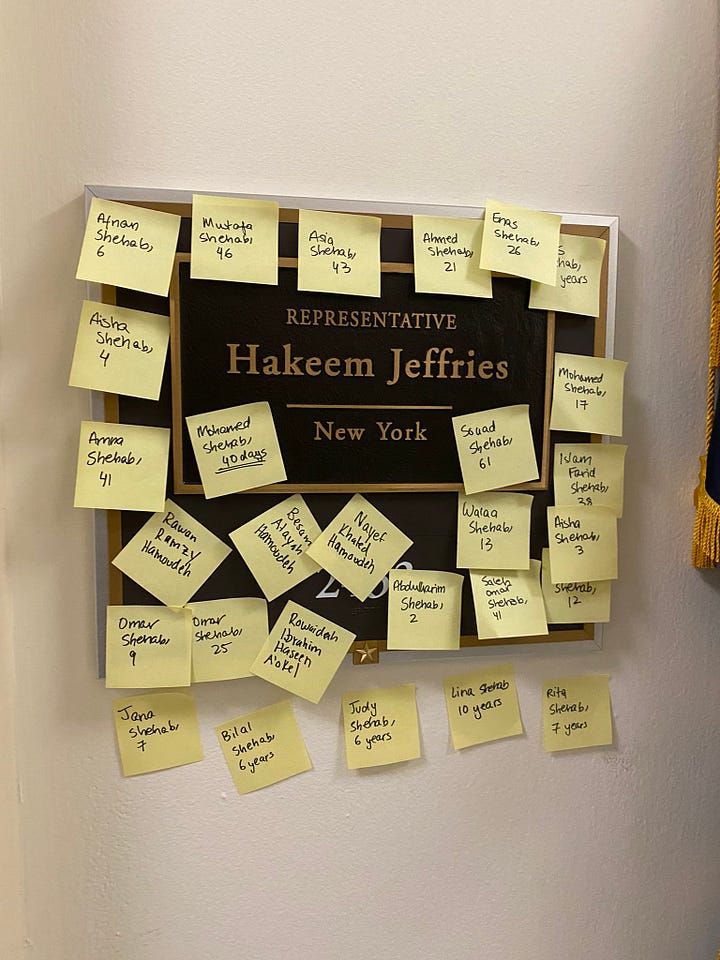 Afnan
Shehab,
6
Mustafa
Shehab,
46
Asia
Shehab,
43
Ahmed
Shehab,
21
Enas
Shehab,
26
years
Aisha
Shehab,
4
REPRESENTATIVE
Hakeem Jeffries
New York
Mohamed
Shehab,
17
Mohamed
Shehab,
40 days
Souad
Shehab,
61
Amna
Shehab,
41
Islam
Farid
Shehab,
38
Rawan
Ramzy
Hamoudeh
Besan
Atayah
Hamoudeh
Nayef
Khaled
Hamoudeh
Walaa
Shehab,
13
Aisha
Shehab,
3
Abdulkarim
Shehab,
2
Saleh
Omar
Shehab,
41
Shehab,
12
Omar
Shehab,
9
Omar
Shehab,
25
Rowaidah
Ibrahim
Haseen
A'okel
Jana
Shehab,
7
Bilal
Shehab,
6 years
Judy
Shehab,
6 years
Lina Shehab
10 years
Rita
Shehab,
7 years